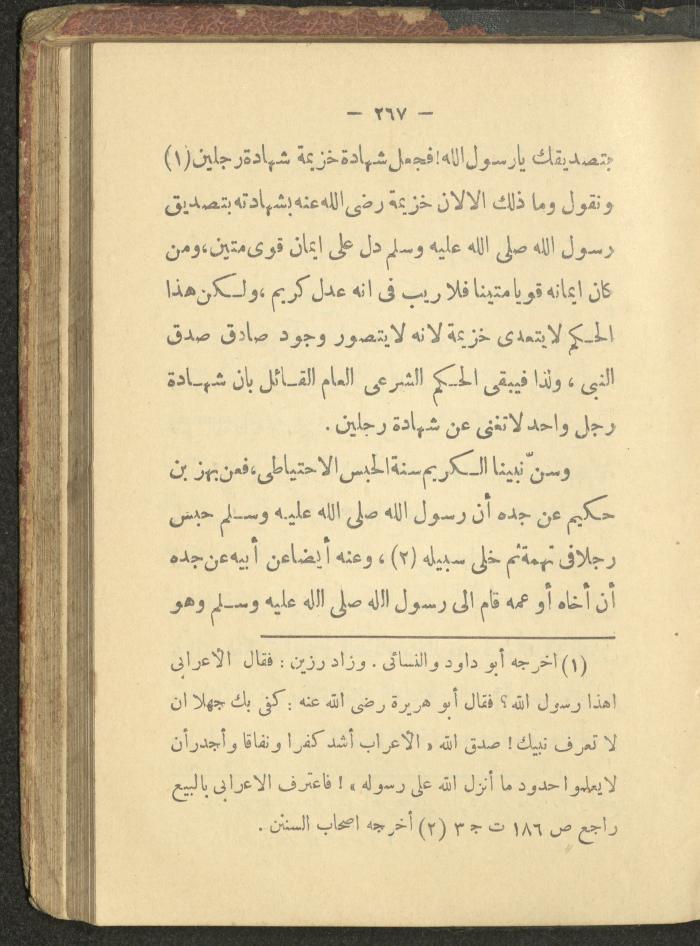 — ٢٦٧ —
بتصديقك يارسول الله! فجعل شهادة خزيمة شهادة رجلين (١)
ونقول وما ذلك الا لان خزيمة رضى الله عنه بشهادته بتصديق
رسول الله صلى الله عليه وسلم دل على ايمان قوى متين، ومن
كان ايمانه قويا متينا فلا ريب فى انه عدل كريم، ولكن هذا
الحكم لا يتعدى خزيمة لانه لا يتصور وجود صادق صدق
النبى، ولذا فيبقى الحكم الشرعى العام القائل بان شهادة
رجل واحد لا تغنى عن شهادة رجلين.
وسنّ نبينا الكريم سنة الحبس الاحتياطى، فعن بهز بن
حكيم عن جده أن رسول الله صلى الله عليه وسلم حبس
رجلا فى تهمة ثم خلى سبيله (٢)، وعنه أيضا عن أبيه عن جده
أن أخاه أو عمه قام الى رسول الله صلى الله عليه وسلم وهو
(١) اخرجه أبو داود والنسائى. وزاد رزين: فقال الاعرابى
اهذا رسول الله؟ فقال أبو هريرة رضى الله عنه: كفى بك جهلا ان
لا تعرف نبيك! صدق الله «الأعراب أشد كفرا ونفاقا وأجدر أن
لا يعلموا حدود ما أنزل الله على رسوله»! فاعترف الاعرابى بالبيع
راجع ص ١٨٦ ت ج ٣ (٢) أخرجه اصحاب السنن.